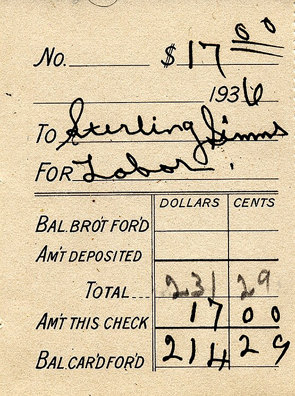 No. $17 00
1936
To Sterling Simms
For Labor.
DOLLARS CENTS
BAL. BRO'T FOR'D
AM'T DEPOSITED
TOTAL 231 29
AM'T THIS CHECK 17 00
BAL. CAR'D FOR'D 214 29